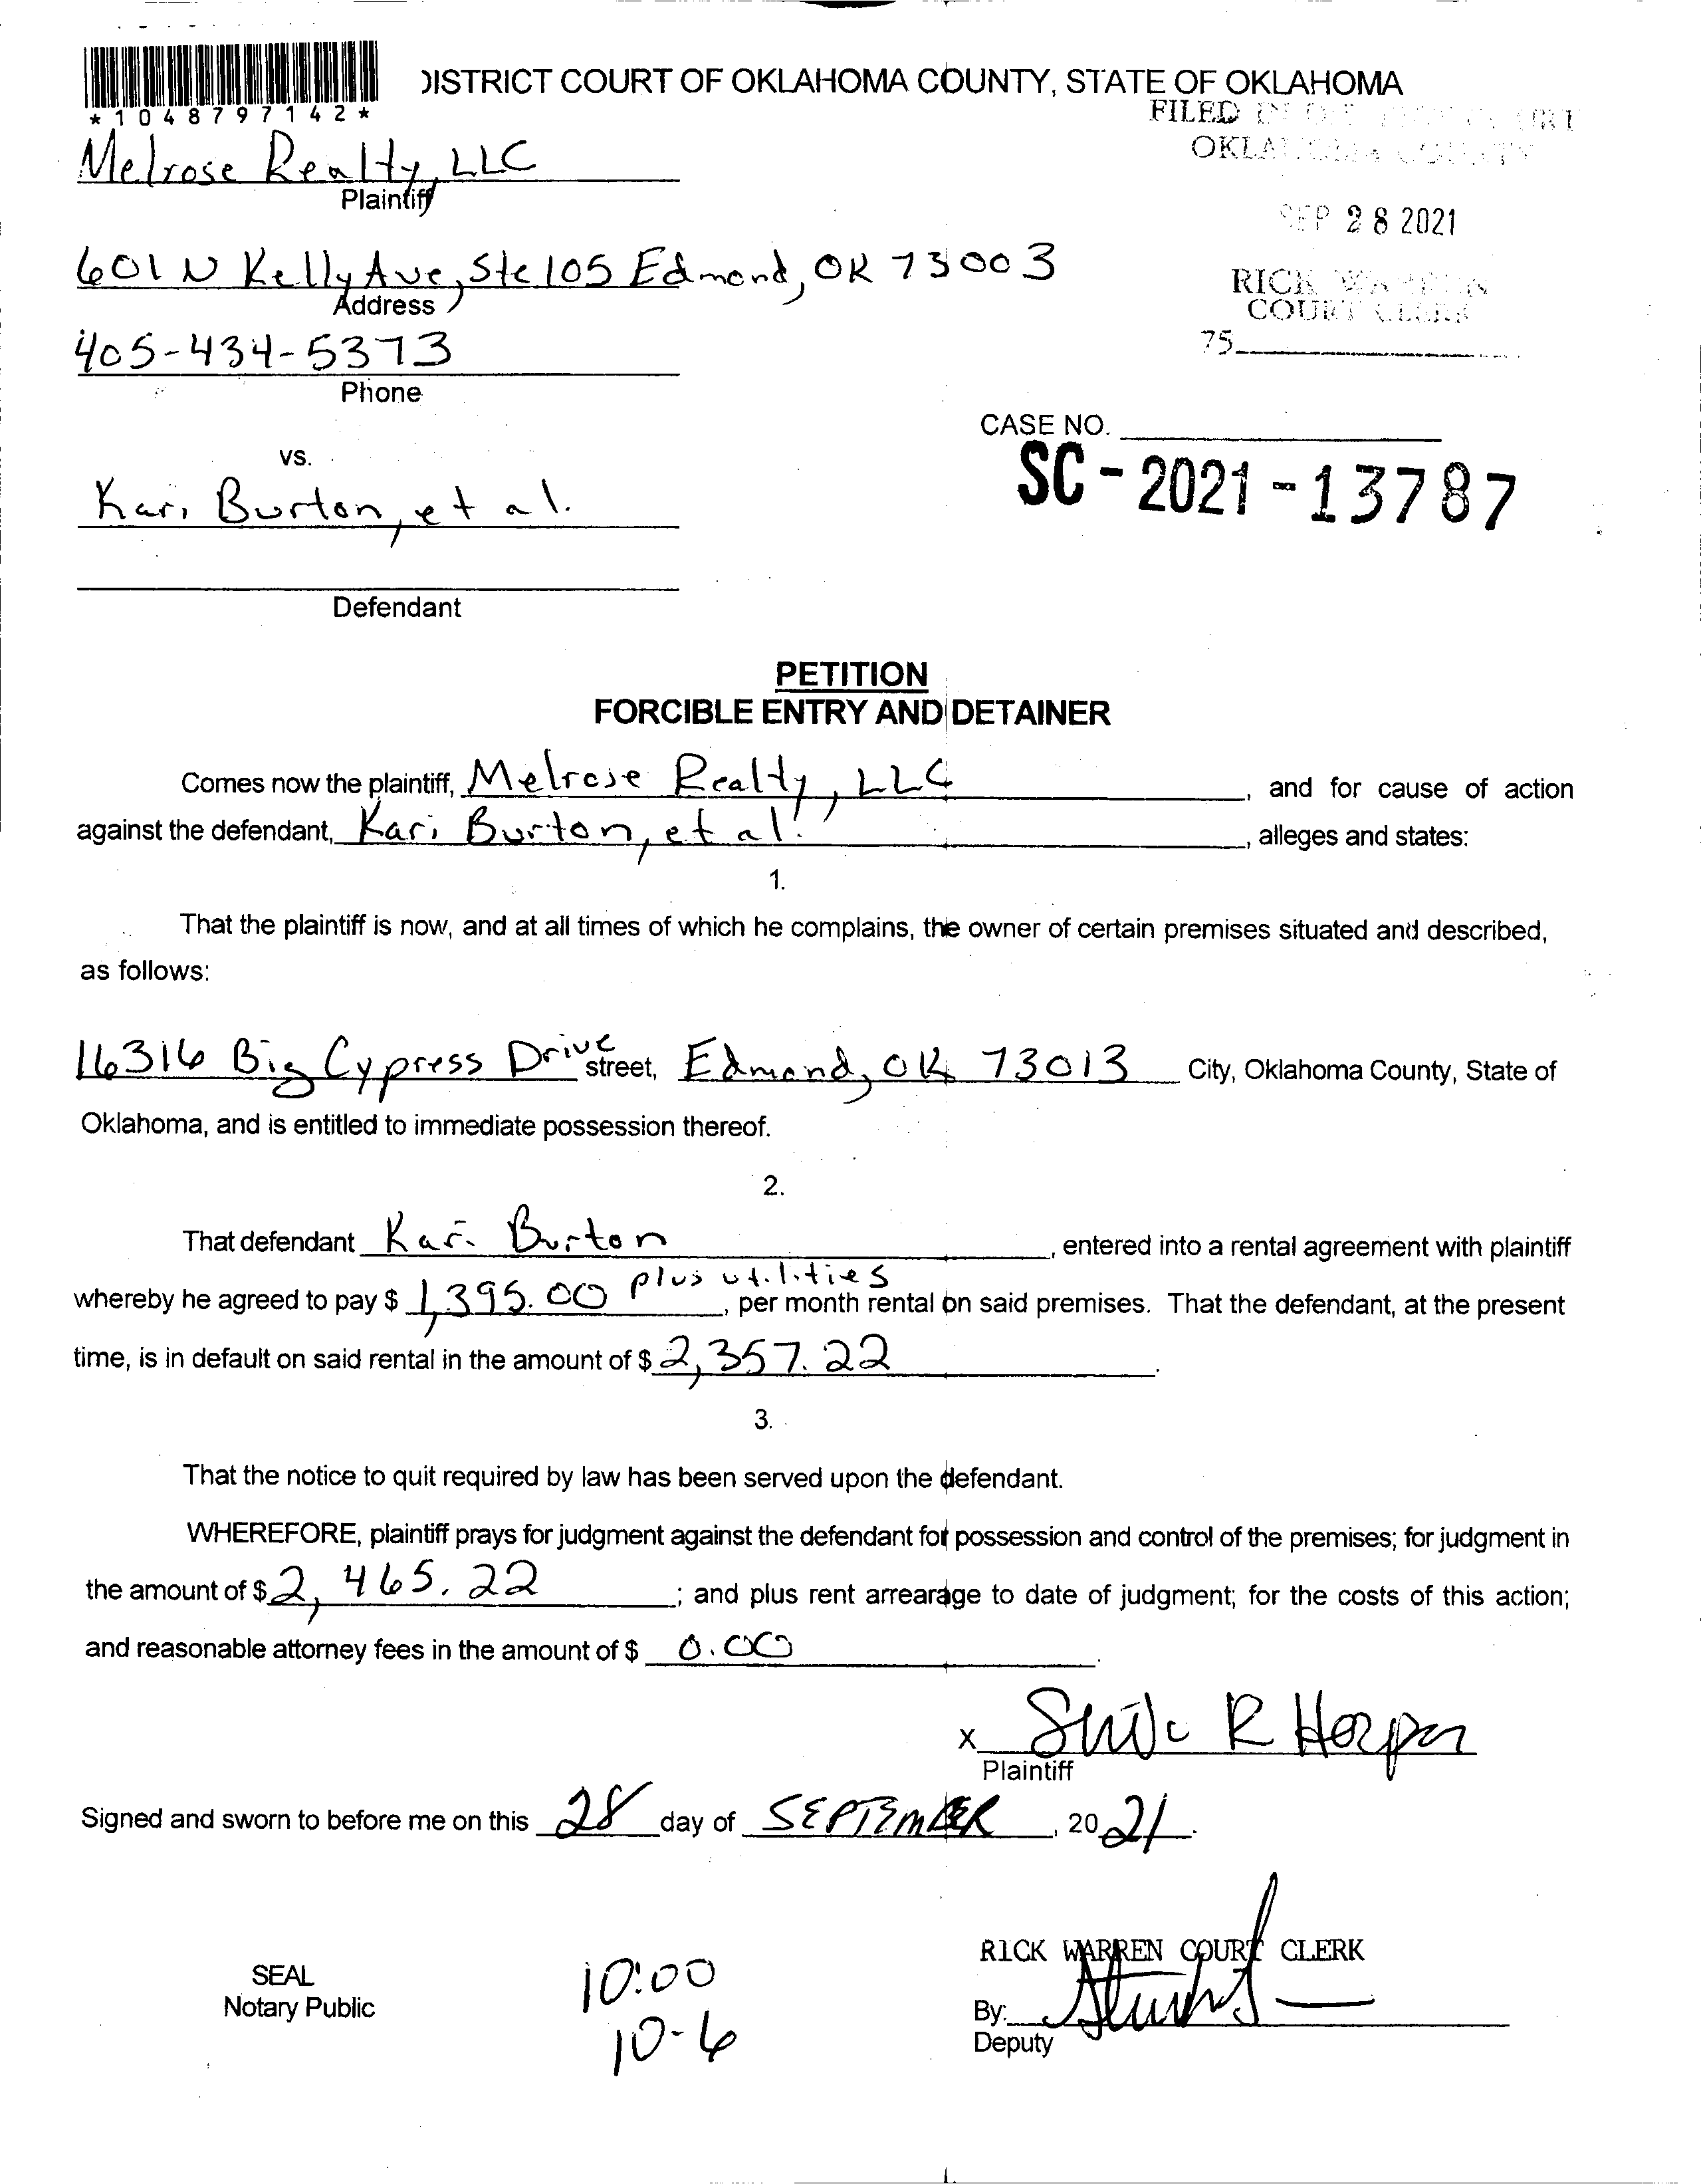 DISTRICT COURT OF OKLAHOMA COUNTY, STATE OF OKLAHOMA
*1048797142*
FILED IN
Melrose Realty, LLC
Plaintiff
SEP 28 2021
601 N Kelly Ave, Ste 105 Edmond, OK 73003
Address
RICK WARREN
COURT CLERK
405-434-5373
75
Phone
CASE NO.
SC-2021-13787
vs.
Kari Burton, et al.
Defendant
PETITION
FORCIBLE ENTRY AND DETAINER
Comes now the plaintiff, Melrose Realty, LLC, and for cause of action
against the defendant, Kari Burton, et al., alleges and states:
1.
That the plaintiff is now, and at all times of which he complains, the owner of certain premises situated and described,
as follows:
16316 Big Cypress Drive street, Edmond, OK 73013 City, Oklahoma County, State of
Oklahoma, and is entitled to immediate possession thereof.
2.
That defendant Kari Burton, entered into a rental agreement with plaintiff
whereby he agreed to pay $ 1,395.00 plus utilities, per month rental on said premises. That the defendant, at the present
time, is in default on said rental in the amount of $ 2,357.22.
3.
That the notice to quit required by law has been served upon the defendant.
WHEREFORE, plaintiff prays for judgment against the defendant for possession and control of the premises; for judgment in
the amount of $ 2,465.22; and plus rent arrearage to date of judgment; for the costs of this action;
and reasonable attorney fees in the amount of $ 0.00.
X R Harper
Plaintiff
Signed and sworn to before me on this 28 day of SEPTEMBER, 2021.
RICK WARREN COURT CLERK
SEAL
Notary Public
10:00
10-6
By:
Deputy